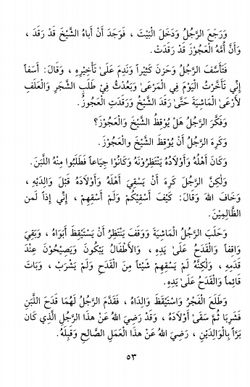 وَرَجَعَ الرَّجُلُ وَدَخَلَ الْبَيْتَ ، فَوَجَدَ أَنَّ أَبَاهُ الشَّيْخَ قَدْ رَقَدَ ،
وَأَنَّ أُمَّهُ الْعَجُوزَ قَدْ رَقَدَتْ .
فَتَأَسَّفَ الرَّجُلُ وَحَزِنَ كَثِيراً وَنَدِمَ عَلَى تَأَخُّرِهِ ، وَقَالَ: أَسَفاً
إِنِّي تَأَخَّرْتُ الْيَوْمَ فِي الْمَرْعَى وَبَعُدْتُ فِي طَلَبِ الشَّجَرِ وَالْعَلَفِ
لِأَرْعَى الْمَاشِيَةَ حَتَّى رَقَدَ الشَّيْخُ وَرَقَدَتِ الْعَجُوزُ.
وَفَكَّرَ الرَّجُلُ هَلْ يُوْقِظُ الشَّيْخَ وَالْعَجُوزَ؟
وَكَرِهَ الرَّجُلُ أَنْ يُوْقِظَ الشَّيْخَ وَالْعَجُوزَ.
وَكَانَ أَهْلُهُ وَأَوْلَادُهُ يَنْتَظِرُونَهُ وَكَانُوْا جِيَاعاً فَطَلَبُوا مِنْهُ اللَّبَنَ.
وَلَكِنَّ الرَّجُلَ كَرِهَ أَنْ يَسْقِيَ أَهْلَهُ وَأَوْلَادَهُ قَبْلَ وَالِدَيْهِ ،
وَخَافَ اللهَ وَقَالَ: كَيْفَ أَسْقِيْكُمْ وَلَمْ أَسْقِهِمْ ، إِنِّي إِذاً لَمِن
الظَّالِمِيْنَ.
وَحَلَبَ الرَّجُلُ الْمَاشِيَةَ وَوَقَفَ يَنْتَظِرُ أَنْ يَسْتَيْقِظَ أَبَوَاهُ ، وَبَقِيَ
وَاقِفاً وَالْقَدَحُ عَلَى يَدِهِ ، وَالْأَطْفَالُ يَبْكُونَ وَيَصِيْحُوْنَ عِنْدَ
قَدَمِهِ ، وَلَكِنَّهُ لَمْ يَسْقِهِمْ شَيْئاً مِنَ الْقَدَحِ وَلَمْ يَشْرَبْ ، وَبَاتَ
قَائِماً وَالْقَدَحُ عَلَى يَدِهِ.
وَطَلَعَ الْفَجْرُ وَاسْتَيْقَظَ وَالِدَاهُ ، فَقَدَّمَ الرَّجُلُ لَهُمَا قَدَحَ اللَّبَنِ
فَشَرِبَا ثُمَّ سَقَىٰ أَوْلَادَهُ ، وَقَدْ رَضِيَ اللهُ عَنْ هَذَا الرَّجُلِ الَّذِي كَانَ
بَرّاً بِالْوَالِدَيْنِ ، رَضِيَ اللهُ عَنْ هَذَا الْعَمَلِ الصَّالِحِ وَقَبِلَهُ.
٥٣